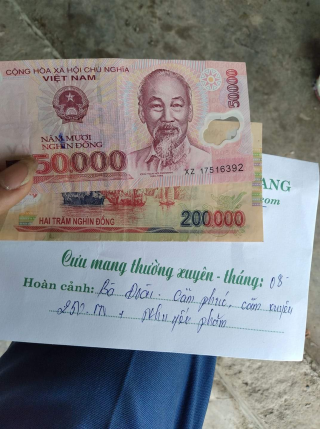 CỘNG HÒA XÃ HỘI CHỦ NGHĨA
VIỆT NAM
50000
NĂM MƯƠI
NGHÌN ĐỒNG
50.000
XZ 17516392
ANG
com
HAI TRĂM NGHÌN ĐỒNG
200.000
Cưu mang thường xuyên - tháng: 08
Hoàn cảnh: Bà Đoài. Cẩm phúc, cẩm xuyên
250. m + Nhu yếu phẩm